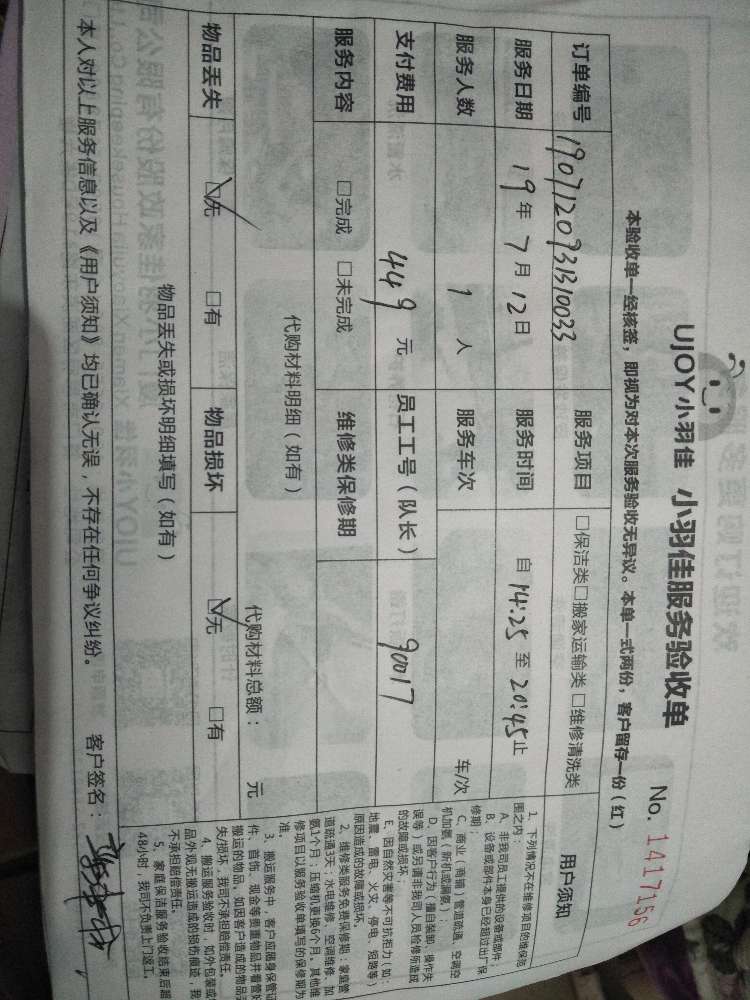 UJOY小羽佳 小羽佳服务验收单 No. 1417156
本验收单一经核签，即视为对本次服务验收无异议。本单一式两份，客户留存一份（红）
订单编号 1907120931310033 服务项目 □保洁类□搬家运输类 □维修清洗类
服务日期 19年 7月 12日 服务时间 自 14:25 至 20:45止
服务人数 1 人 服务车次 车/次
支付费用 449 元 员工工号（队长） 90017
服务内容 □完成 □未完成 维修类保修期
代购材料明细（如有）
代购材料总额： 元
物品丢失 ☑无 □有 物品损坏 ☑无 □有
物品丢失或损坏明细填写（如有）
本人对以上服务信息以及《用户须知》均已确认无误，不存在任何争议纠纷。 客户签名：
用户须知
1、下列情况不在维修项目的维保范
围之内：
A、非我司员工提供的设备或部件；
B、设备或部件本身已经超过出厂保
修期；
C、商业（商铺）管道疏通、空调空
机加氨（新机或漏氨）；
D、因客户行为（擅自装卸、操作失
误等）或另请非我司人员检修所造成
的故障或损坏；
E、因自然灾害等不可抗拒力（如：
地震、雷电、火灾、停电、短路等）
原因造成的故障或损坏。
2、维修类服务免费保修期：家庭管
道疏通3天；水电维修、空调维修、加
氨1个月；压缩机更换6个月。其他维
修项目以服务验收单填写的保修期为
准。
3、搬运服务中，客户应随身保管证
件、首饰、现金等贵重物品并看管好
搬运的物品。如因客户造成的物品丢
失/损坏，我司不承担赔偿责任。
4、搬运服务验收时，如外包装或
品外观无搬运造成的损伤痕迹，我
不承担赔偿责任。
5、家庭保洁服务验收结束后超
48小时，我司不负责上门返工。